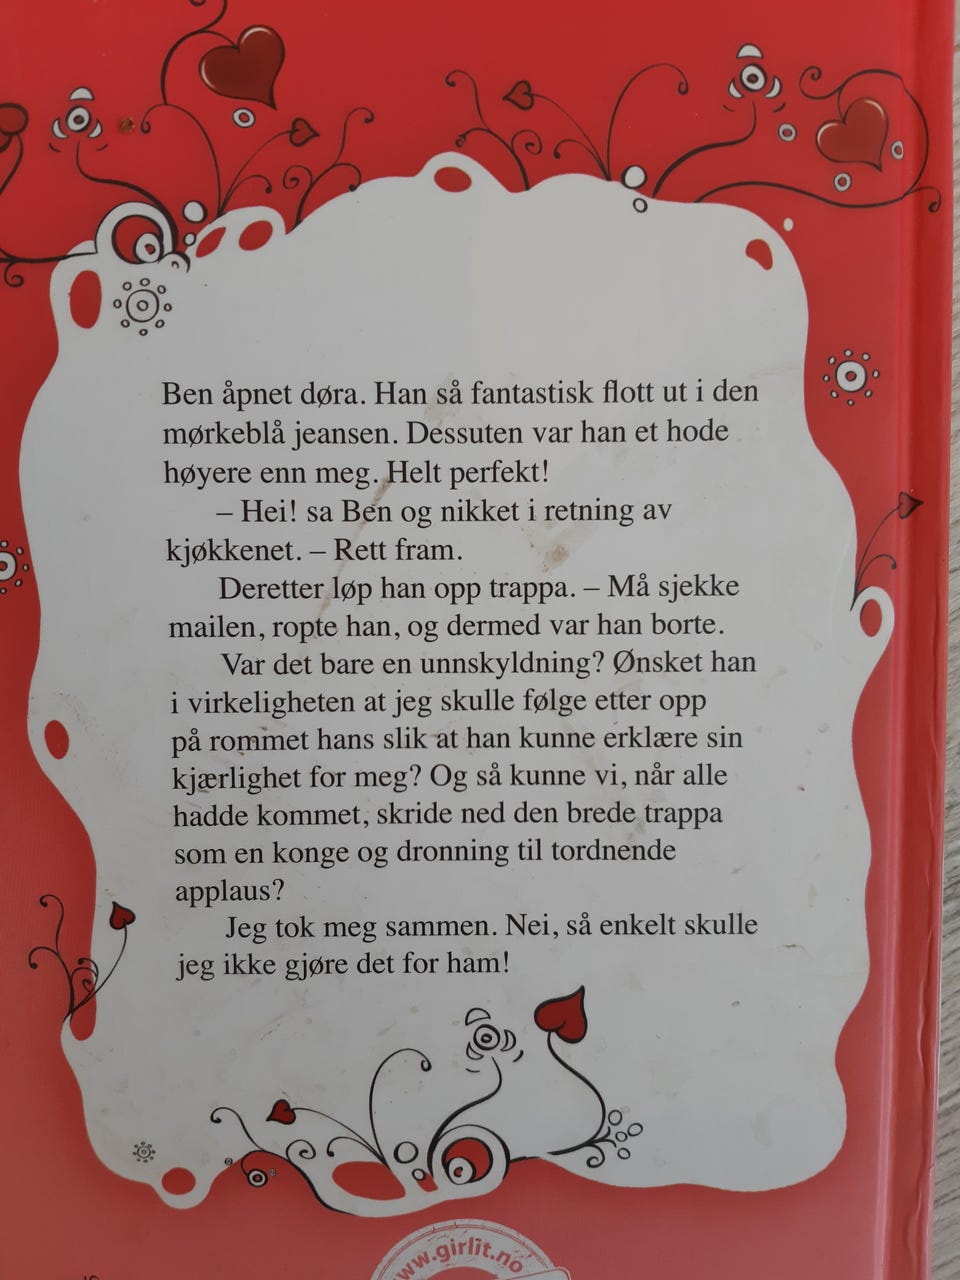 Ben åpnet døra. Han så fantastisk flott ut i den
mørkeblå jeansen. Dessuten var han et hode
høyere enn meg. Helt perfekt!
– Hei! sa Ben og nikket i retning av
kjøkkenet. – Rett fram.
Deretter løp han opp trappa. – Må sjekke
mailen, ropte han, og dermed var han borte.
Var det bare en unnskyldning? Ønsket han
i virkeligheten at jeg skulle følge etter opp
på rommet hans slik at han kunne erklære sin
kjærlighet for meg? Og så kunne vi, når alle
hadde kommet, skride ned den brede trappa
som en konge og dronning til tordnende
applaus?
Jeg tok meg sammen. Nei, så enkelt skulle
jeg ikke gjøre det for ham!
www.girlit.no